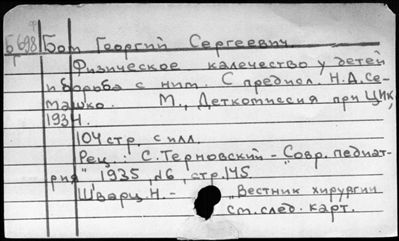 Б 698 Бом Георгий Сергеевич.
Физическое калечество у детей
и борьба с ним. С предисл. Н.А. Се-
машко. М., Деткомиссия при ЦИК,
1934.
104 стр. с илл.
Рец.: С. Терновский - "Совр. педиат-
рия", 1935, №6, стр. 145.
Шварц Н. - "Вестник хирургии
См. след. карт.